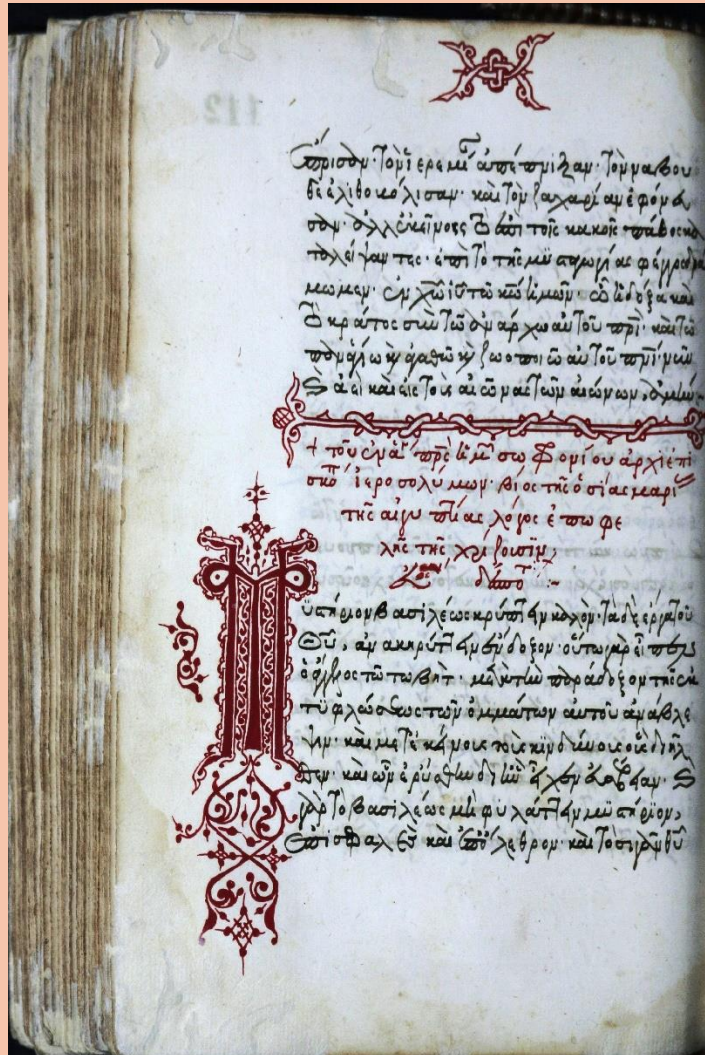 ἔπρισαν· τὸν ἱερεμί ἀπέπνιξαν· τὸν ναβου
θὲ ἐλιθοκόλισαν· καὶ τὸν ζαχαρίαν ἐφόνευ
σαν· ἀλλ' ἐκείνους ἐπὶ τοῖς κακοῖς
ταλείψαντες· ἐπὶ τὸ τῆς μυσταγωγίας φέγγος δρά
μωμεν· ἐν χῶ ἰῦ τῶ κῶ ἡμῶν· ὧ ἡ δόξα καὶ
τὸ κράτος σὺν τῶ ἀνάρχω αὐτοῦ πρὶ· καὶ τῶ
παναγίω κ ἀγαθῶ κ ζωοποιῶ αὐτοῦ πνὶ· νῦν
κ ἀεὶ καὶ εἰς τοὺς αἰῶνας τῶν αἰώνων, ἀμήν
+ τοῦ ἐν ἁγ πρς ἡμ σωφρονίου ἀρχιεπι
σκοπ ἱεροσολύμων· βίος τῆς ὁσίας μαρί
τῆς αἰγυπτίας λόγος ἐπωφε
λὴς τῆς
Μυστήριον βασιλέως κρύπτειν καλὸν· τὰ δὲ ἔργα τοῦ
θῦ, ἀνακηρύττειν ἔνδοξον· οὕτω γὰρ εἶπεν
ὁ ἄγγελος τῶ τωβὴτ· μετὰ τὴν παράδοξον τῆς ἐκ
τυφλώσεως τῶν ὀμμάτων αὐτοῦ ἀνάβλε
ψιν· καὶ μετ' ἐκείνους τοὺς κινδύνους οὓς διῆλ
θεν· καὶ ὧν ἐρύσθη δι' ἣν εἶχεν εὐσέβειαν· κ
γὰρ τὸ βασιλέως μὴ φυλάττειν μυστήριον,
ἐπισφαλὲς καὶ ἐπόλεθρον· καὶ τὸ σιγᾶν θῦ